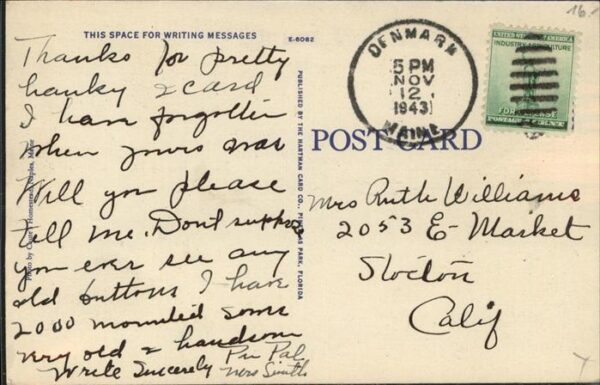 16.-
THIS SPACE FOR WRITING MESSAGES
E-6082
Thanks for pretty
hanky & card
I have forgotten
when yours was
Will you please
tell me. Dont suppose
you ever see any
old buttons I have
2000 mounted some
very old & handsom
Write Sincerely Pen Pal
Mrs Smith
PUBLISHED BY THE HARTMAN CARD CO., PINELLAS PARK, FLORIDA
Photo by Homestead, Naples, Maine
DENMARK
5 PM
NOV
12
1943
MAINE
UNITED STATES OF AMERICA
INDUSTRY AGRICULTURE
FOR DEFENSE
POSTAGE
POST CARD
Mrs Ruth Williams
2053 E- Market
Stocton
Calif